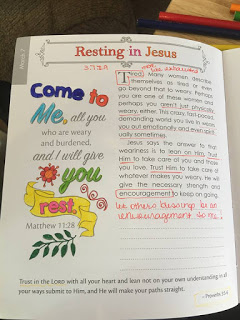 Week 7
Resting in Jesus
Tired. Many women describe
themselves as tired or even
go beyond that to weary. Perhaps
you are one of these women and
perhaps you aren't just physically
weary, either. This crazy, fast-paced,
demanding world you live in wears
you out emotionally and even spirit-
ually sometimes.
Jesus says the answer to that
weariness is to lean on Him. Trust
Him to take care of you and those
you love. Trust Him to take care of
whatever makes you weary. He will
give the necessary strength and
encouragement to keep on going.
let others blessings be an
encouragement to me!
Come to
Me, all you
who are weary
and burdened,
and I will give
you
rest.
Matthew 11:28
Trust in the LORD with all your heart and lean not on your own understanding in all
your ways submit to Him, and He will make your paths straight.